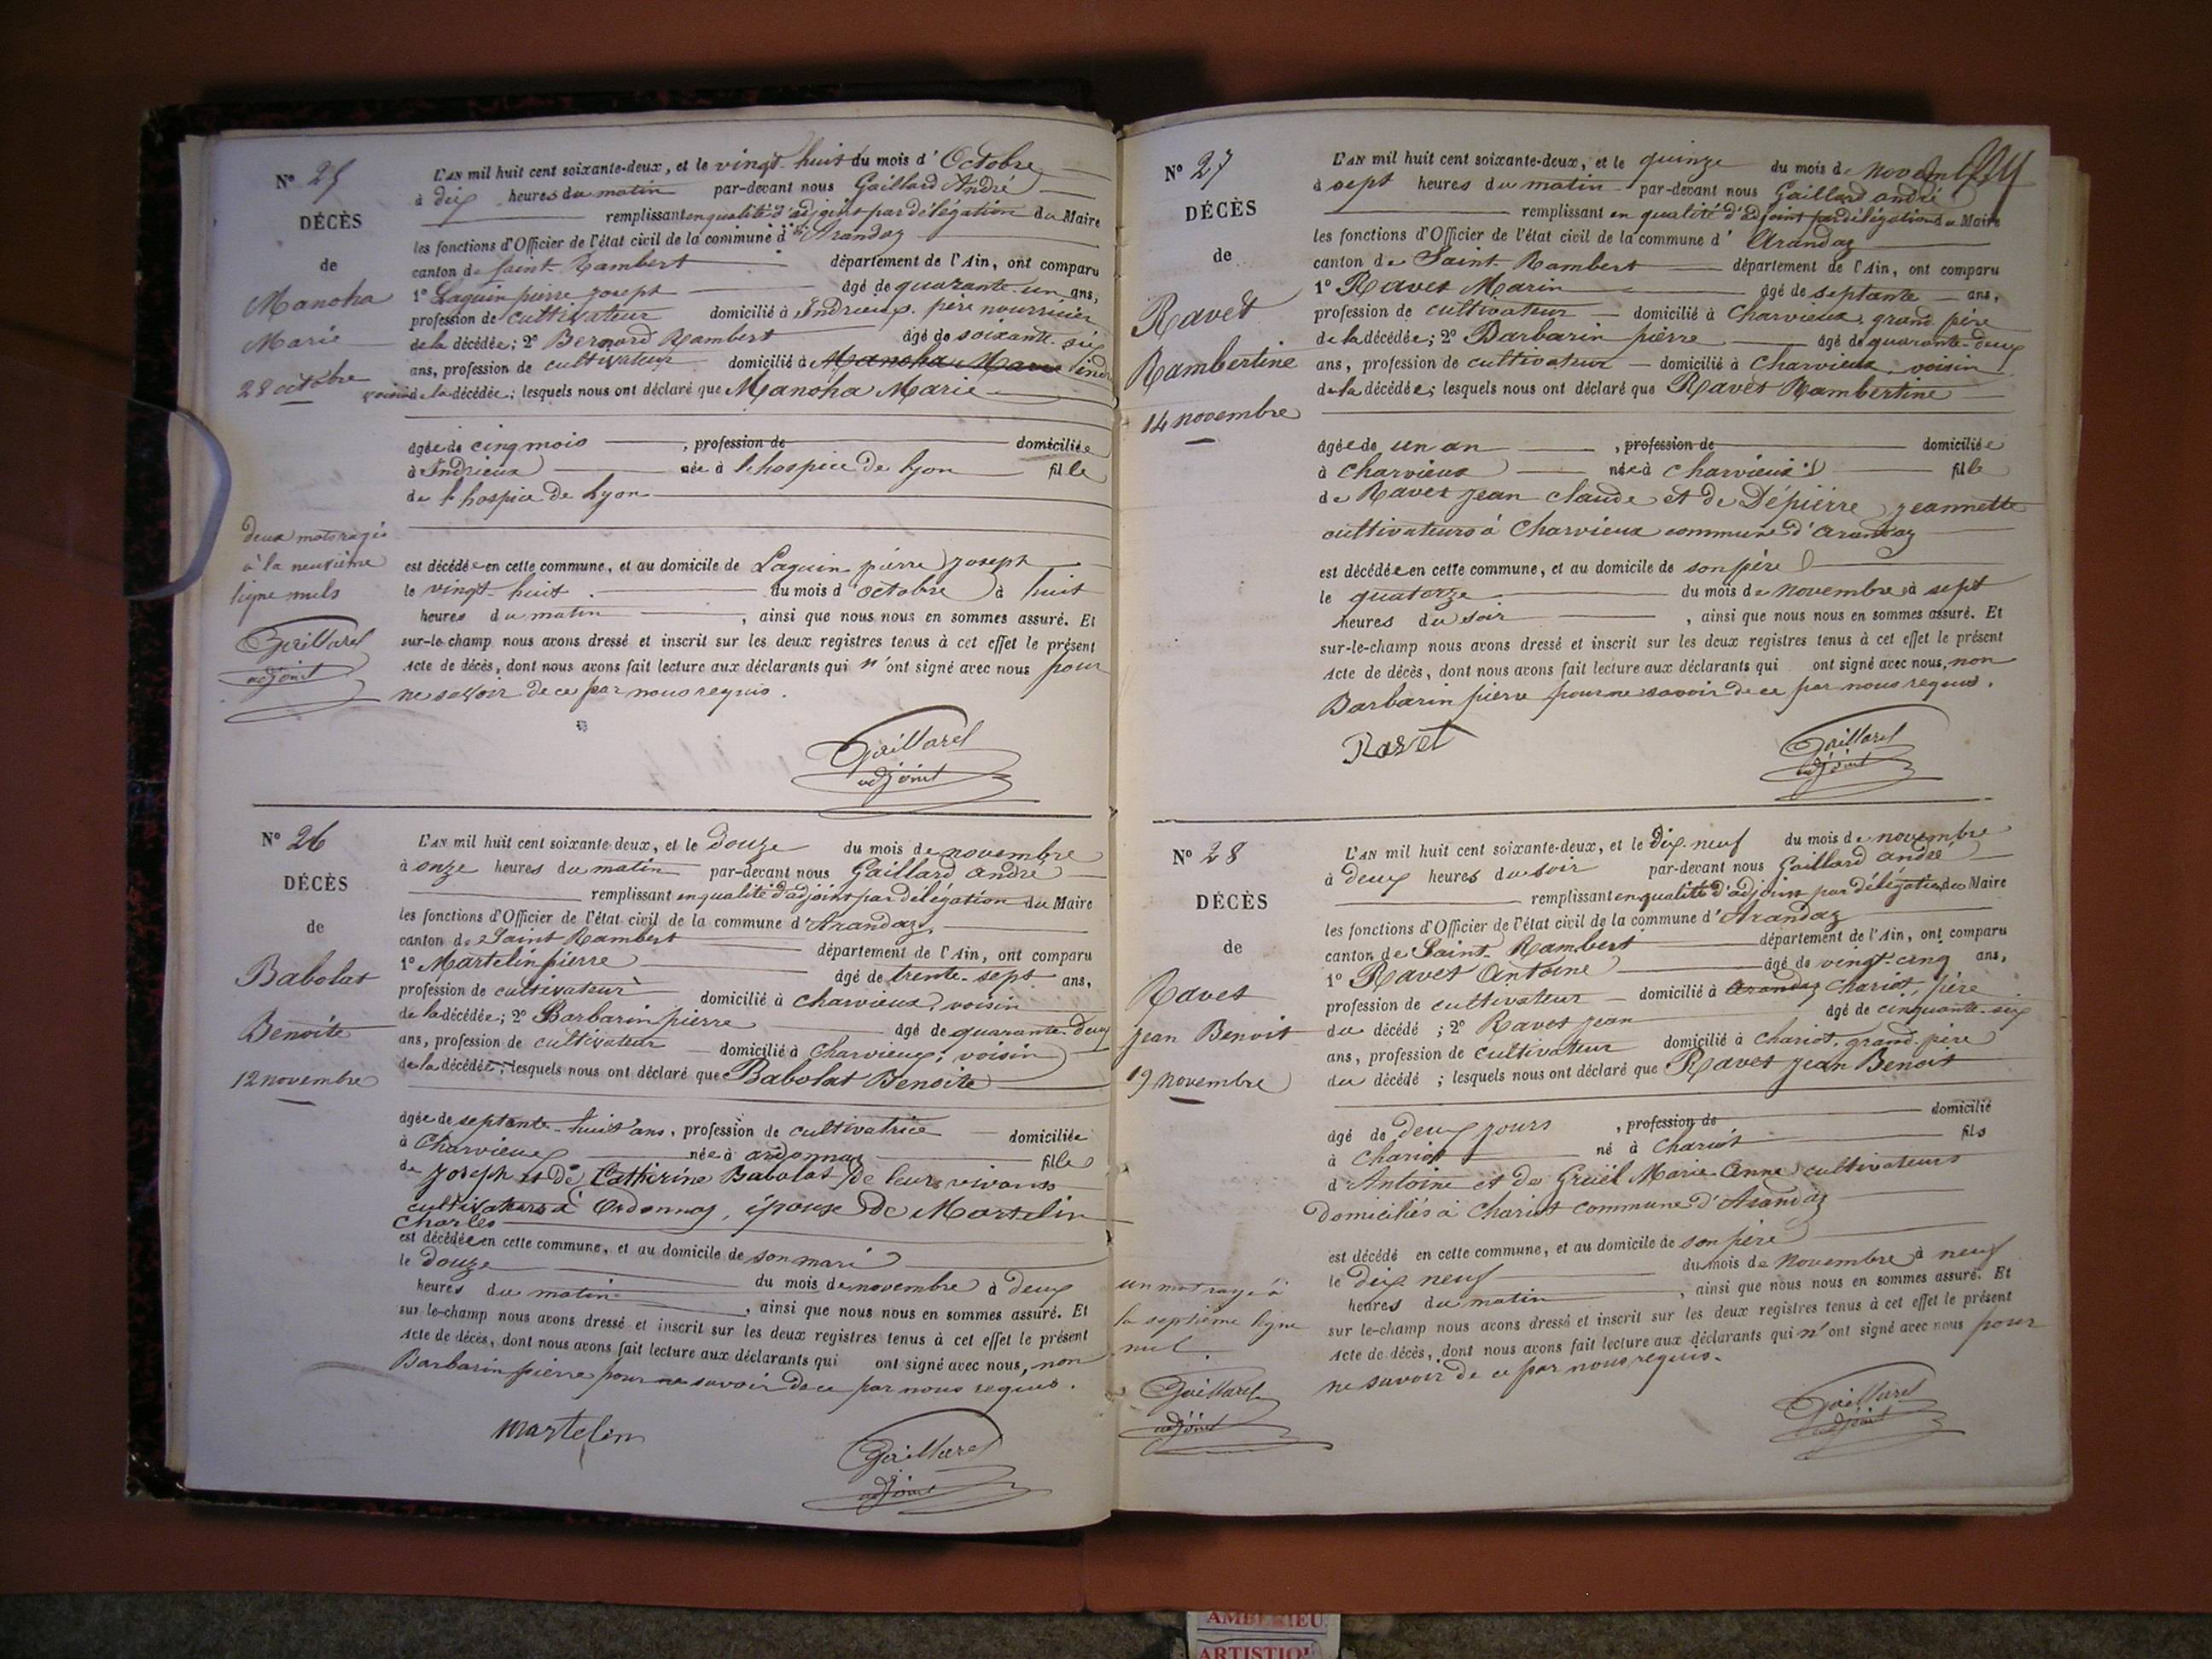 N° 25
DÉCÈS
de
Manoha
Marie
28 octobre
deux mots rayés
à la neuvième
ligne nuls
Gaillard
adjoint
L'AN mil huit cent soixante-deux, et le vingt-huit du mois d'Octobre
à dix heures du matin par-devant nous Gaillard André
remplissant en qualité d'adjoint par délégation du Maire
les fonctions d'Officier de l'état civil de la commune d'Arandaz
canton de Saint-Rambert département de l'Ain, ont comparu
1° Laguin pierre joseph âgé de quarante-un ans,
profession de cultivateur domicilié à Indrieux, père nourricier
de la décédée; 2° Bernard Rambert âgé de soixante-six
ans, profession de cultivateur domicilié à Manoha Marie Indr
voisin de la décédée; lesquels nous ont déclaré que Manoha Marie
âgée de cinq mois, profession de domiciliée
à Indrieux née à l'hospice de Lyon fille
de l'hospice de Lyon
est décédée en cette commune, et au domicile de Laguin pierre joseph
le vingt-huit du mois d'octobre à huit
heures du matin, ainsi que nous nous en sommes assuré. Et
sur-le-champ nous avons dressé et inscrit sur les deux registres tenus à cet effet le présent
Acte de décès, dont nous avons fait lecture aux déclarants qui n'ont signé avec nous pour
ne savoir de ce par nous requis.
Gaillard
adjoint
N° 26
DÉCÈS
de
Babolat
Benoite
12 novembre
L'AN mil huit cent soixante-deux, et le douze du mois de novembre
à onze heures du matin par-devant nous Gaillard andré
remplissant en qualité d'adjoint par délégation du Maire
les fonctions d'Officier de l'état civil de la commune d'Arandaz
canton de Saint Rambert département de l'Ain, ont comparu
1° Martelin pierre âgé de trente-sept ans,
profession de cultivateur domicilié à Charvieux, voisin
de la décédée; 2° Barbarin pierre âgé de quarante-deux
ans, profession de cultivateur domicilié à Charvieux, voisin
de la décédée; lesquels nous ont déclaré que Babolat Benoite
âgée de septante-huit ans, profession de cultivatrice domiciliée
à Charvieux née à ordonnas fille
de Joseph et de Catherine Babolat de leurs vivants
cultivateurs à Ordonnas, épouse de Martelin
Charles
est décédée en cette commune, et au domicile de son mari
le douze du mois de novembre à deux
heures du matin, ainsi que nous nous en sommes assuré. Et
sur-le-champ nous avons dressé et inscrit sur les deux registres tenus à cet effet le présent
Acte de décès, dont nous avons fait lecture aux déclarants qui ont signé avec nous, non
Barbarin pierre pour ne savoir de ce par nous requis.
Martelin
Gaillard
adjoint
N° 27
DÉCÈS
de
Ravet
Rambertine
14 novembre
L'AN mil huit cent soixante-deux, et le quinze du mois de novembre
à sept heures du matin par-devant nous Gaillard andré
remplissant en qualité d'adjoint par délégation du Maire
les fonctions d'Officier de l'état civil de la commune d'Arandaz
canton de Saint-Rambert département de l'Ain, ont comparu
1° Ravet Marin âgé de septante ans,
profession de cultivateur domicilié à Charvieux, grand père
de la décédée; 2° Barbarin pierre âgé de quarante-deux
ans, profession de cultivateur domicilié à Charvieux, voisin
de la décédée; lesquels nous ont déclaré que Ravet Rambertine
âgée de un an, profession de domiciliée
à Charvieux née à Charvieux fille
de Ravet jean claude et de Dépierre jeannette
cultivateurs à Charvieux commune d'arandaz
est décédée en cette commune, et au domicile de son père
le quatorze du mois de novembre à sept
heures du soir, ainsi que nous nous en sommes assuré. Et
sur-le-champ nous avons dressé et inscrit sur les deux registres tenus à cet effet le présent
Acte de décès, dont nous avons fait lecture aux déclarants qui ont signé avec nous, non
Barbarin pierre pour ne savoir de ce par nous requis.
Ravet
Gaillard
adjoint
N° 28
DÉCÈS
de
Ravet
jean Benoit
19 novembre
un mot rayé à
la septième ligne
nul
Gaillard
adjoint
L'AN mil huit cent soixante-deux, et le dix-neuf du mois de novembre
à deux heures du soir par-devant nous Gaillard andré
remplissant en qualité d'adjoint par délégation du Maire
les fonctions d'Officier de l'état civil de la commune d'Arandaz
canton de Saint-Rambert département de l'Ain, ont comparu
1° Ravet Antoine âgé de vingt-cinq ans,
profession de cultivateur domicilié à Arandaz Chariot, père
du décédé; 2° Ravet jean âgé de cinquante-six
ans, profession de cultivateur domicilié à Chariot, grand-père
du décédé; lesquels nous ont déclaré que Ravet Jean Benoit
âgé de deux jours, profession de domicilié
à Chariot né à Chariot fils
d'Antoine et de Gruël Marie-Anne cultivateurs
domiciliés à Chariot commune d'Arandaz
est décédé en cette commune, et au domicile de son père
le dix-neuf du mois de novembre à neuf
heures du matin, ainsi que nous nous en sommes assuré. Et
sur-le-champ nous avons dressé et inscrit sur les deux registres tenus à cet effet le présent
Acte de décès, dont nous avons fait lecture aux déclarants qui n'ont signé avec nous pour
ne savoir de ce par nous requis.
Gaillard
adjoint
AMBERIEU
ARTISTIQU